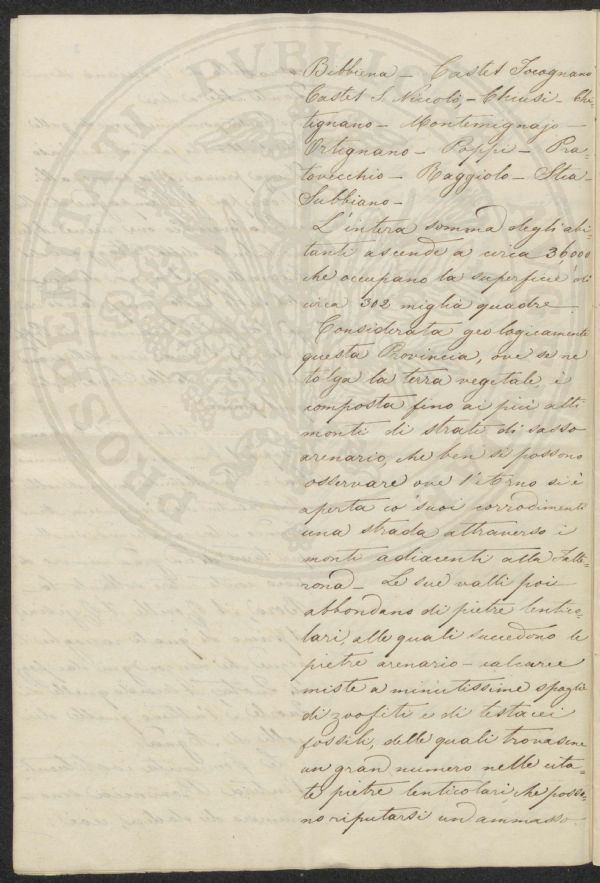 Bibbiena – Castel Focognano
Castel S. Niccolò, – Chiusi – Chi-
tignano – Montemignajo –
Ortignano – Poppi – Pra-
tovecchio – Raggiolo – Stia –
Subbiano –
L'intera somma degli abi-
tanti ascende a circa 36000
che occupano la superficie di
circa 302 miglia quadre –
Considerata geologicamente
questa Provincia, ove se ne
tolga la terra vegetale, è
composta fino ai più alti
monti di strati di sasso
arenario, che ben si possono
osservare ove l'Arno si è
aperta co' suoi corrodimenti
una strada attraverso i
monti adiacenti alla Falte-
rona – Le sue valli poi
abbondano di pietre lentico-
lari, alle quali succedono le
pietre arenario – calcaree
miste a minutissime spoglie
di zoofiti e di testacei
fossili, delle quali trovasene
un gran numero nelle cita-
te pietre lenticolari, che posso-
no riputarsi un ammasso
PROSPERITATI PVBLICAE